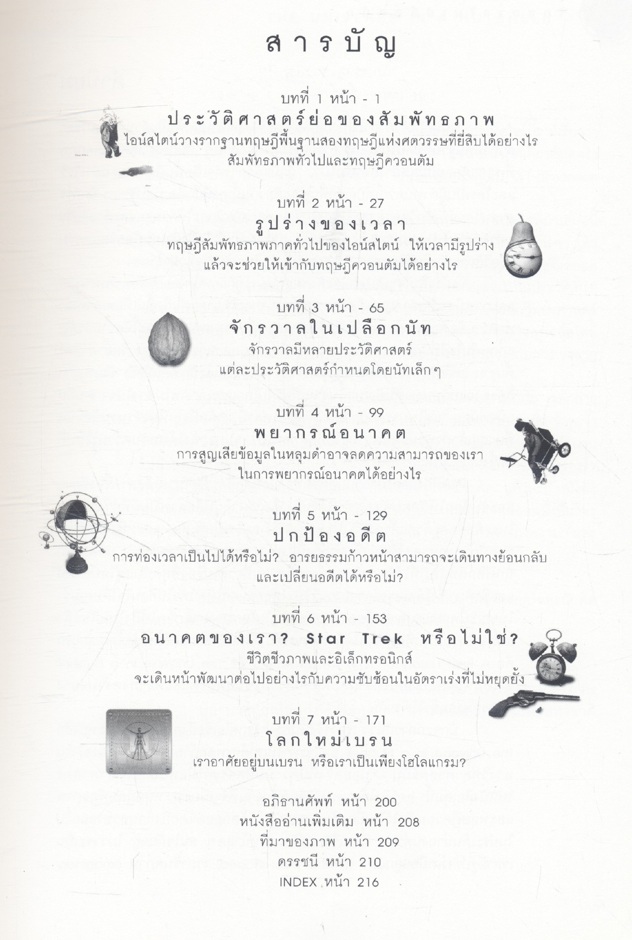 สารบัญ
บทที่ 1 หน้า - 1
ประวัติศาสตร์ย่อของสัมพัทธภาพ
ไอน์สไตน์วางรากฐานทฤษฎีพื้นฐานสองทฤษฎีแห่งศตวรรษที่ยี่สิบได้อย่างไร
สัมพัทธภาพทั่วไปและทฤษฎีควอนตัม
บทที่ 2 หน้า - 27
รูปร่างของเวลา
ทฤษฎีสัมพัทธภาพภาคทั่วไปของไอน์สไตน์ ให้เวลามีรูปร่าง
แล้วจะช่วยให้เข้ากับทฤษฎีควอนตัมได้อย่างไร
บทที่ 3 หน้า - 65
จักรวาลในเปลือกนัท
จักรวาลมีหลายประวัติศาสตร์
แต่ละประวัติศาสตร์กำหนดโดยนัทเล็กๆ
บทที่ 4 หน้า - 99
พยากรณ์อนาคต
การสูญเสียข้อมูลในหลุมดำอาจลดความสามารถของเรา
ในการพยากรณ์อนาคตได้อย่างไร
บทที่ 5 หน้า - 129
ปกป้องอดีต
การท่องเวลาเป็นไปได้หรือไม่? อารยธรรมก้าวหน้าสามารถจะเดินทางย้อนกลับ
และเปลี่ยนอดีตได้หรือไม่?
บทที่ 6 หน้า - 153
อนาคตของเรา? Star Trek หรือไม่ใช่?
ชีวิตชีวภาพและอิเล็กทรอนิกส์
จะเดินหน้าพัฒนาต่อไปอย่างไรกับความซับซ้อนในอัตราเร่งที่ไม่หยุดยั้ง
บทที่ 7 หน้า - 171
โลกใหม่เบรน
เราอาศัยอยู่บนเบรน หรือเราเป็นเพียงโฮโลแกรม?
อภิธานศัพท์ หน้า 200
หนังสืออ่านเพิ่มเติม หน้า 208
ที่มาของภาพ หน้า 209
ดรรชนี หน้า 210
INDEX หน้า 216